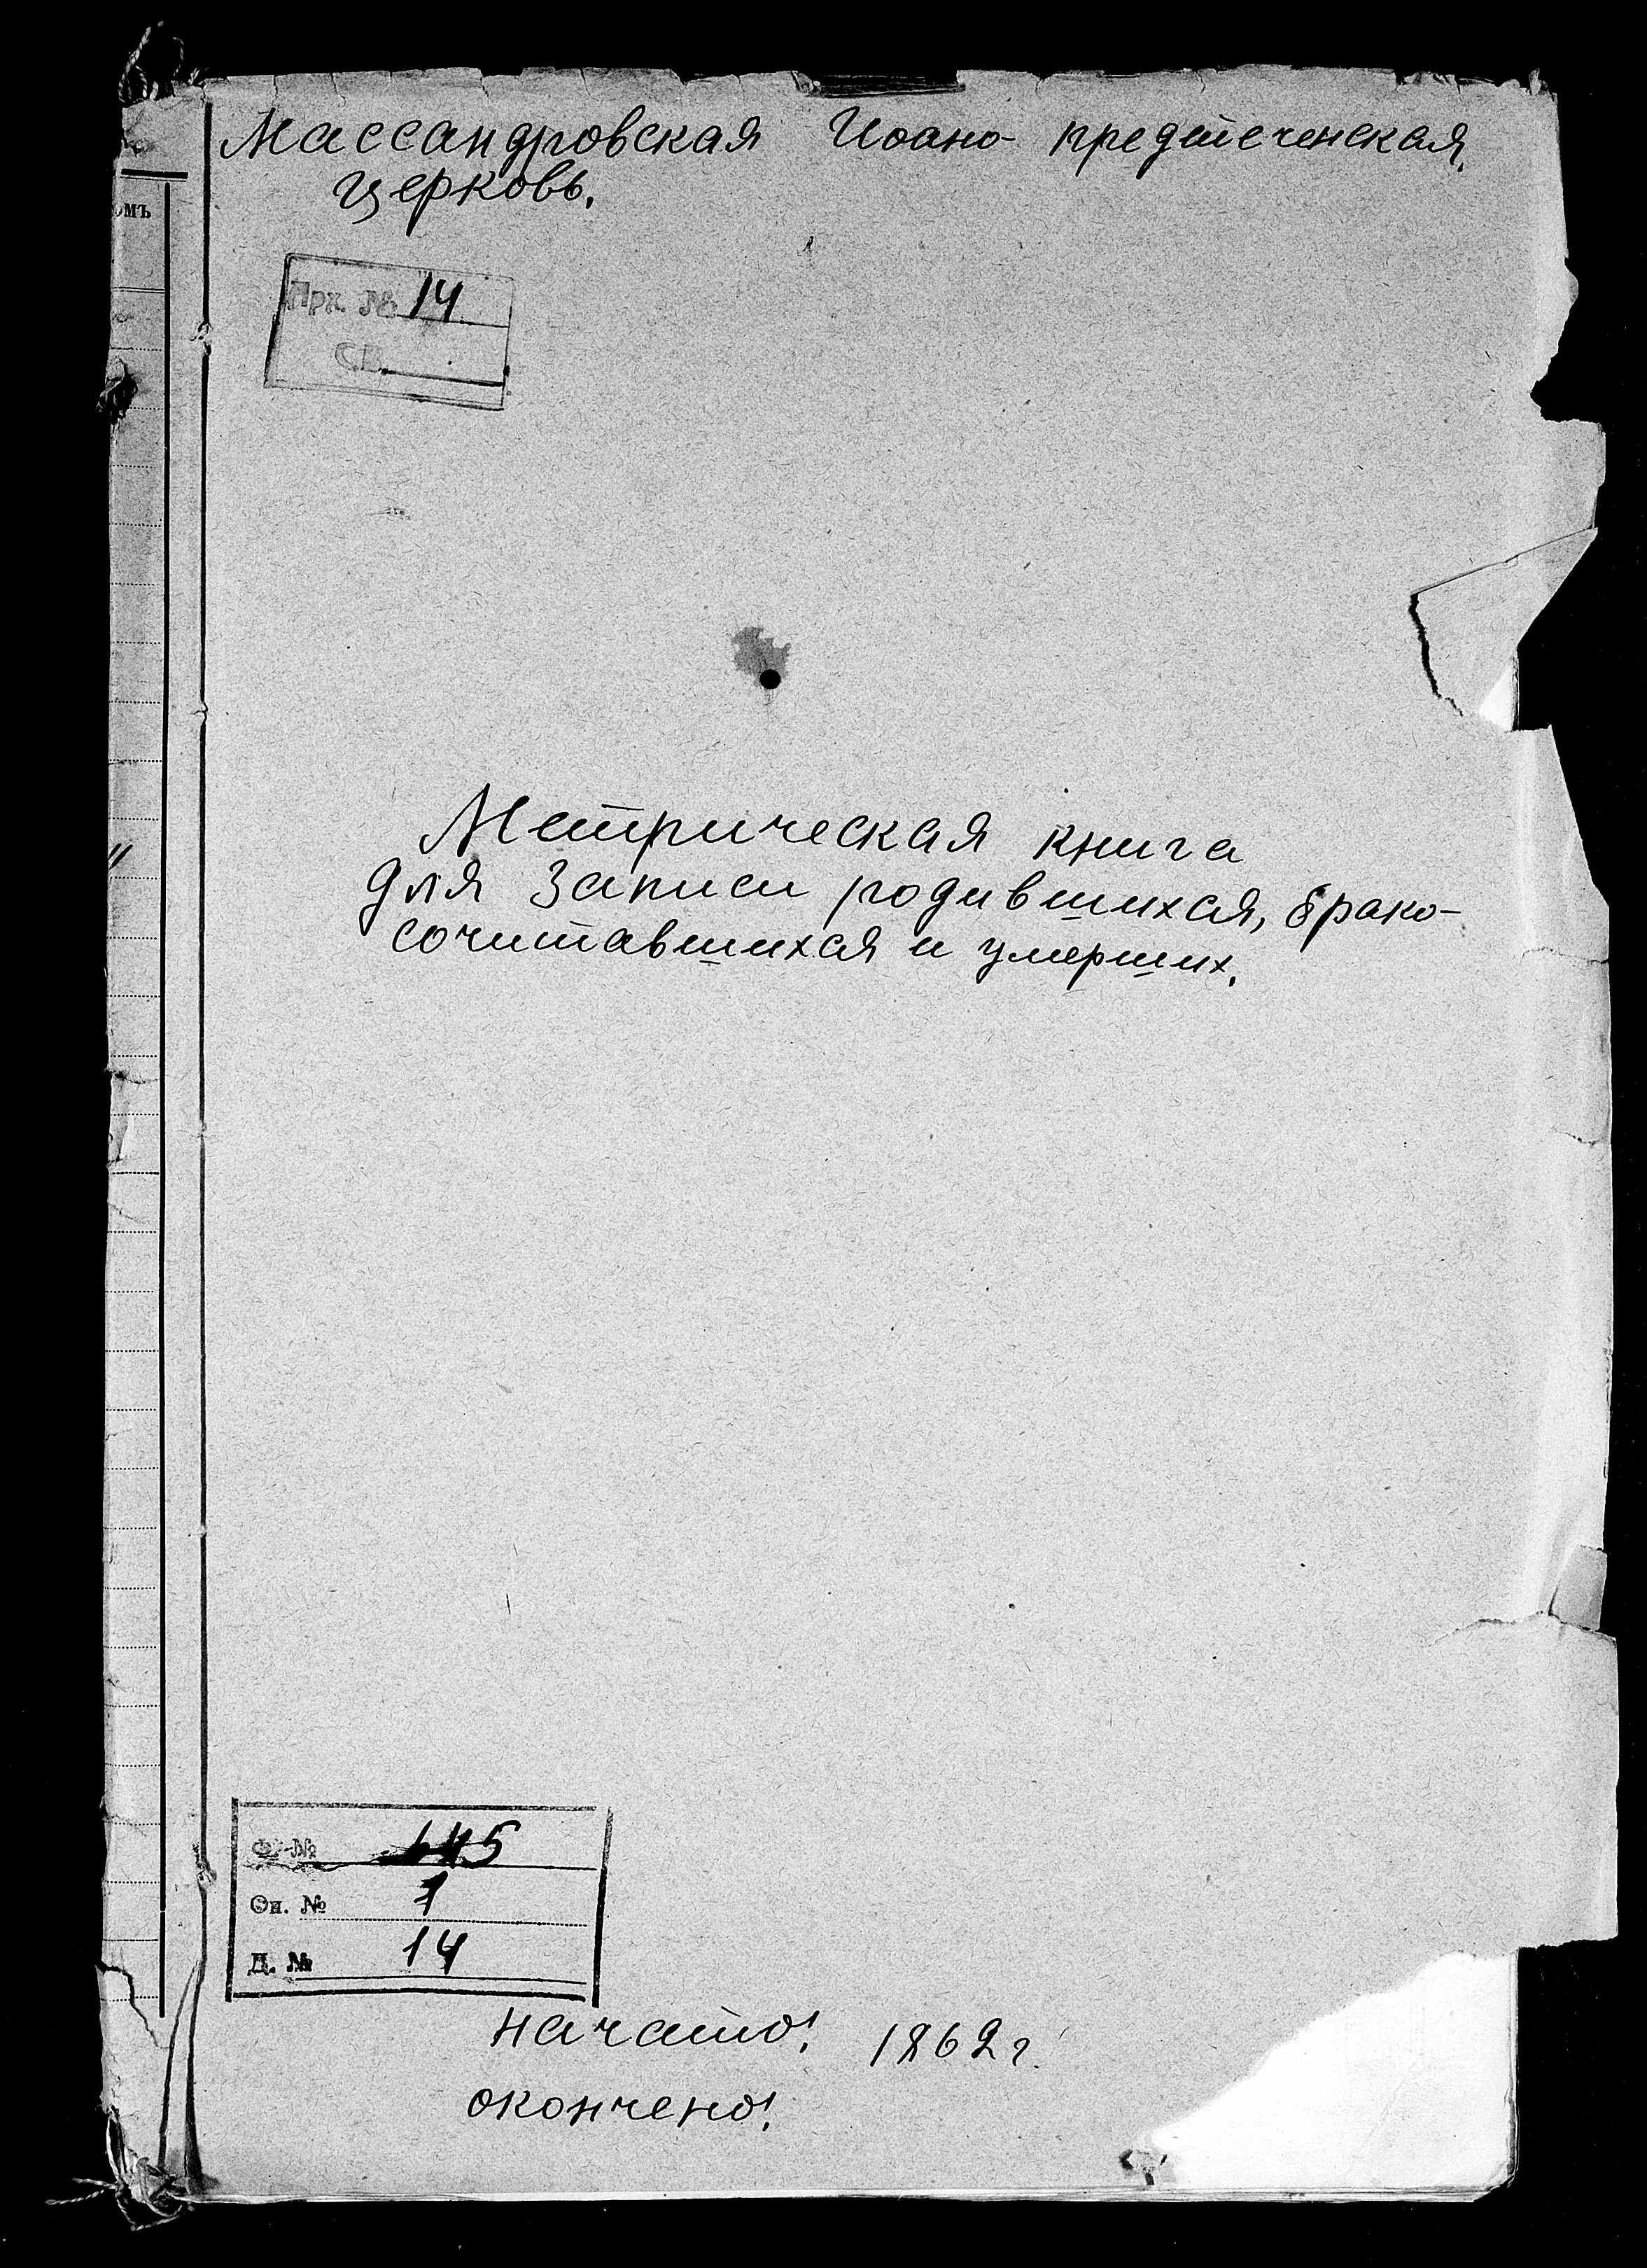 Массандровская Иоано-предтеченская
церковь.
омъ
Арх. № 14
СВ.
Метрическая книга
для записи родившихся, брако-
сочитавшихся и умерших.
Ф. № 645
Оп. № 1
Д. № 14
начато: 1862 г.
окончено: